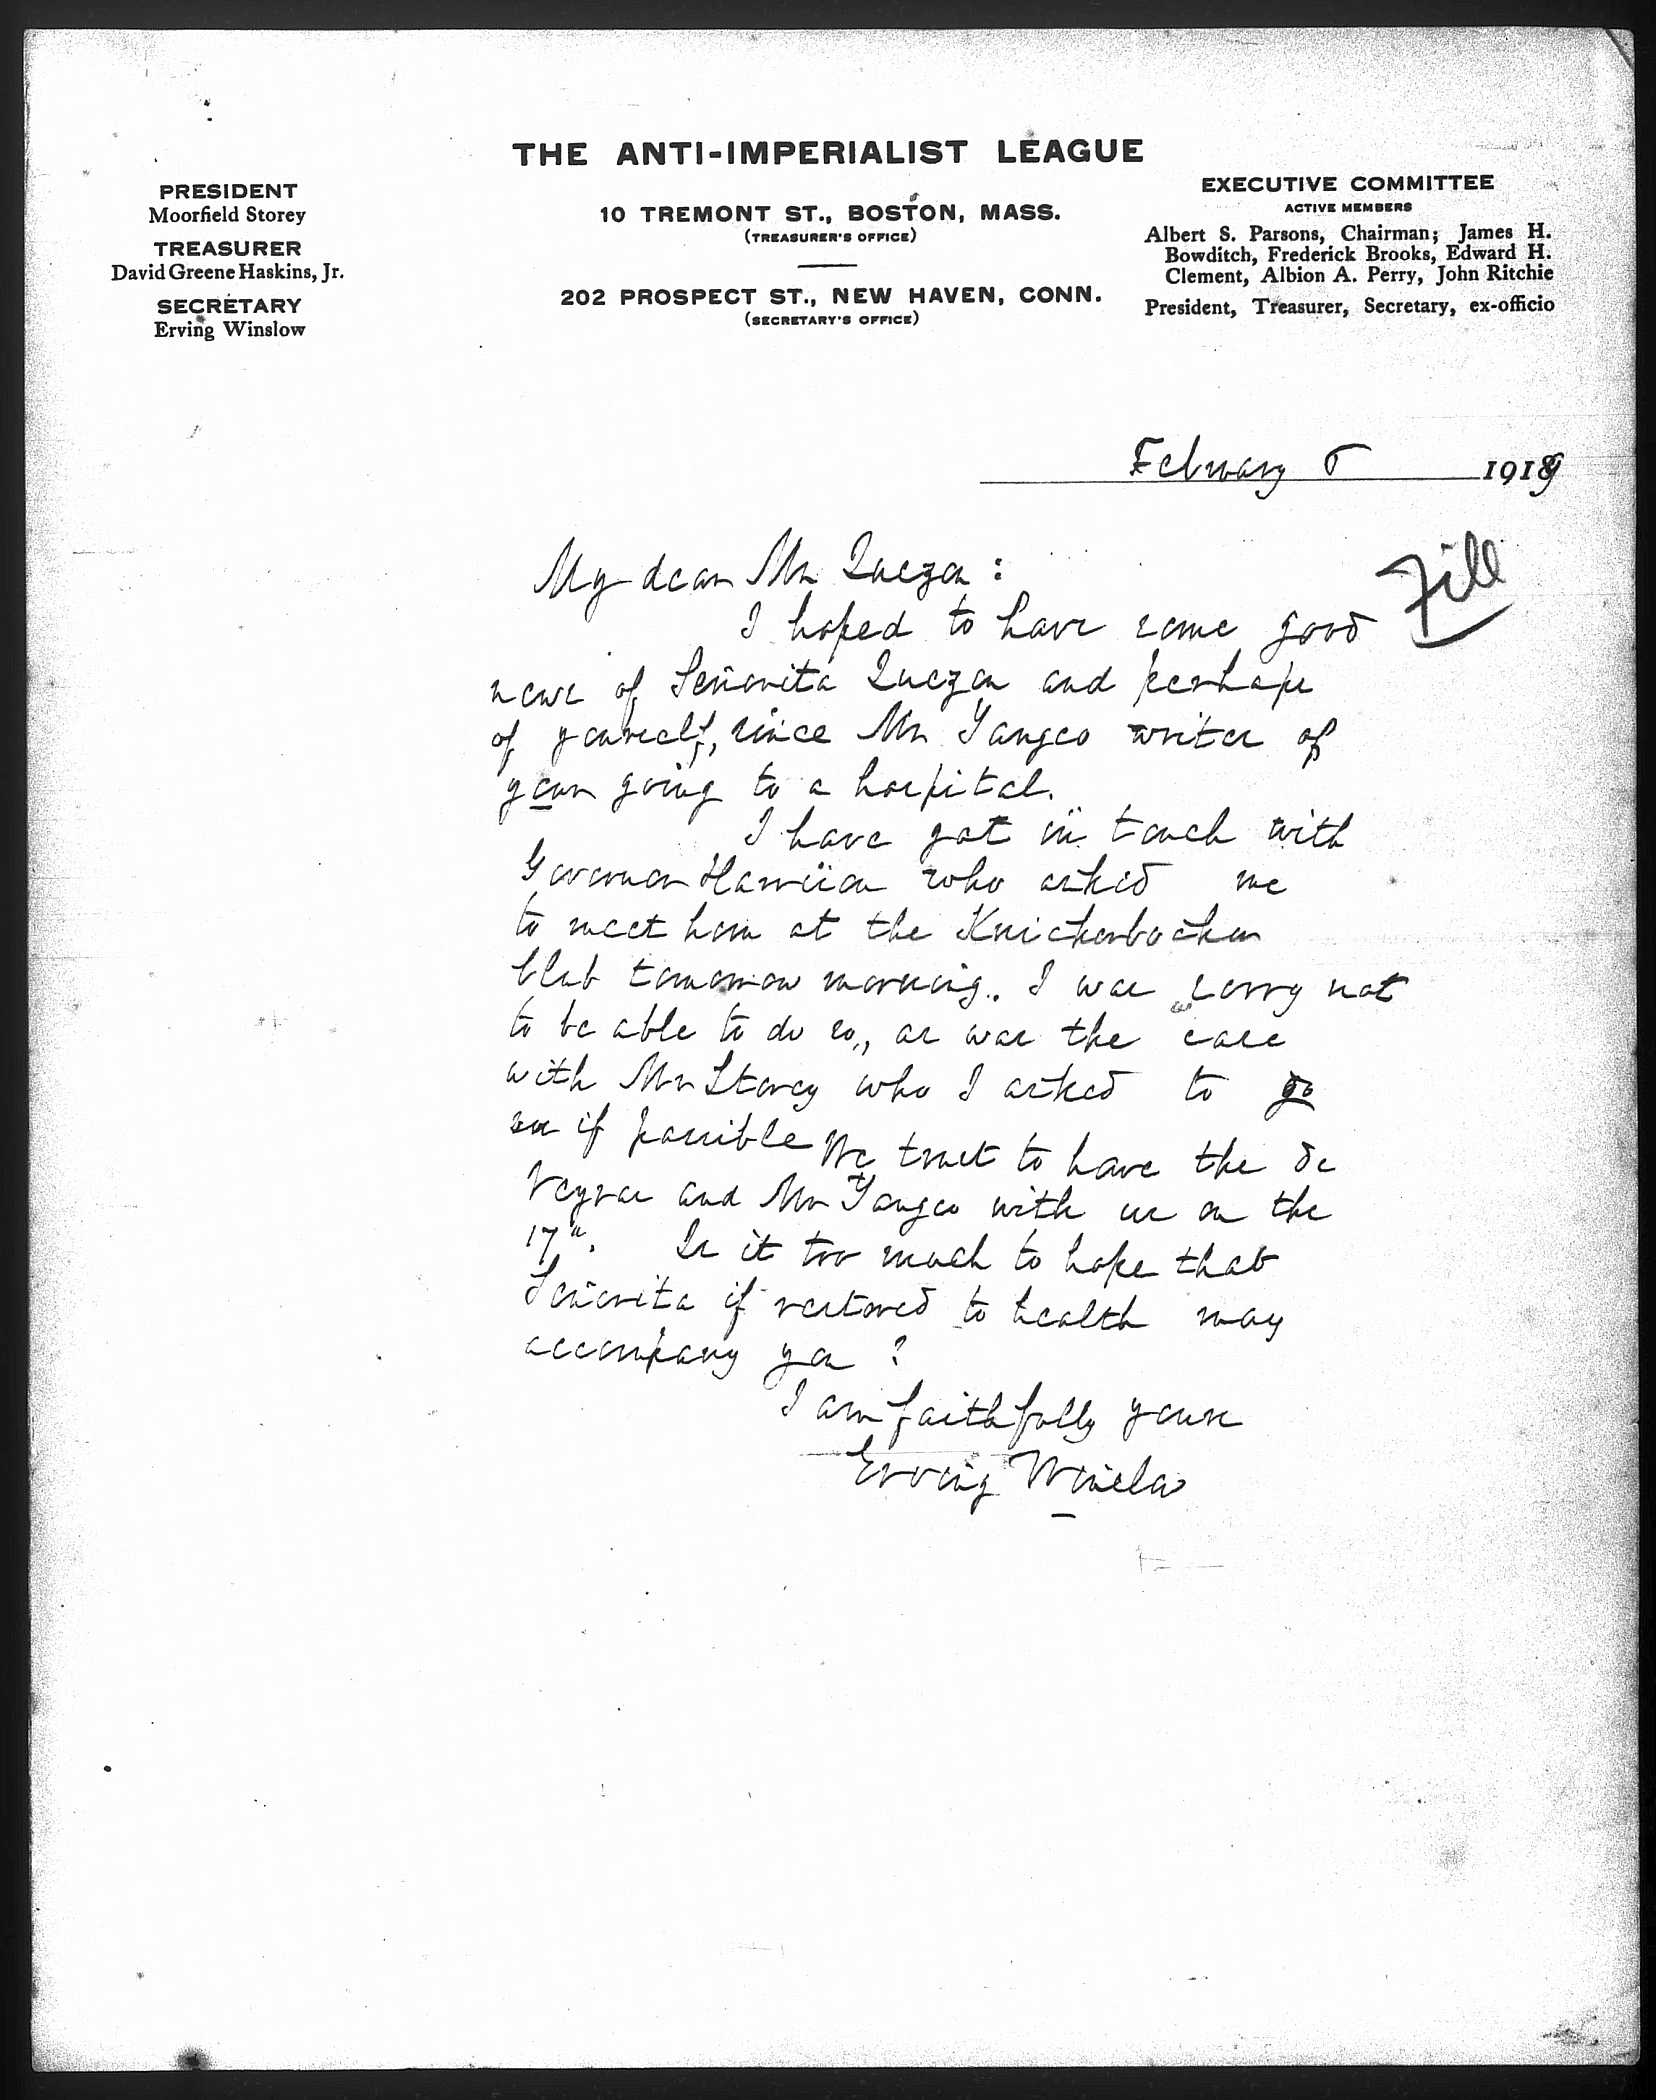 THE ANTI-IMPERIALIST LEAGUE
10 TREMONT ST., BOSTON, MASS.
(TREASURER'S OFFICE)
202 PROSPECT ST., NEW HAVEN, CONN.
(SECRETARY'S OFFICE)
PRESIDENT
Moorfield Storey
TREASURER
David Greene Haskins, Jr.
SECRETARY
Erving Winslow
EXECUTIVE COMMITTEE
ACTIVE MEMBERS
Albert S. Parsons, Chairman; James H.
Bowditch, Frederick Brooks, Edward H.
Clement, Albion A. Perry, John Ritchie
President, Treasurer, Secretary, ex-officio
February 1919
My dear Mr Quezon :
File
I hoped to have some good
news of Señorita Quezon and perhaps
of yourself, since Mr Yangco writes of
your going to a hospital.
I have got in touch with
Governor Harrison who asked me
to meet him at the Knickerbocker
Club tomorrow morning. I was sorry not
to be able to do so, as was the case
with Mr Storey who I asked to go
on if possible We trust to have the de
Veyras and Mr Yangco with us on the
17". Is it too much to hope that
Señorita if restored to health may
accompany you ?
I am faithfully yours
Erving Winslow